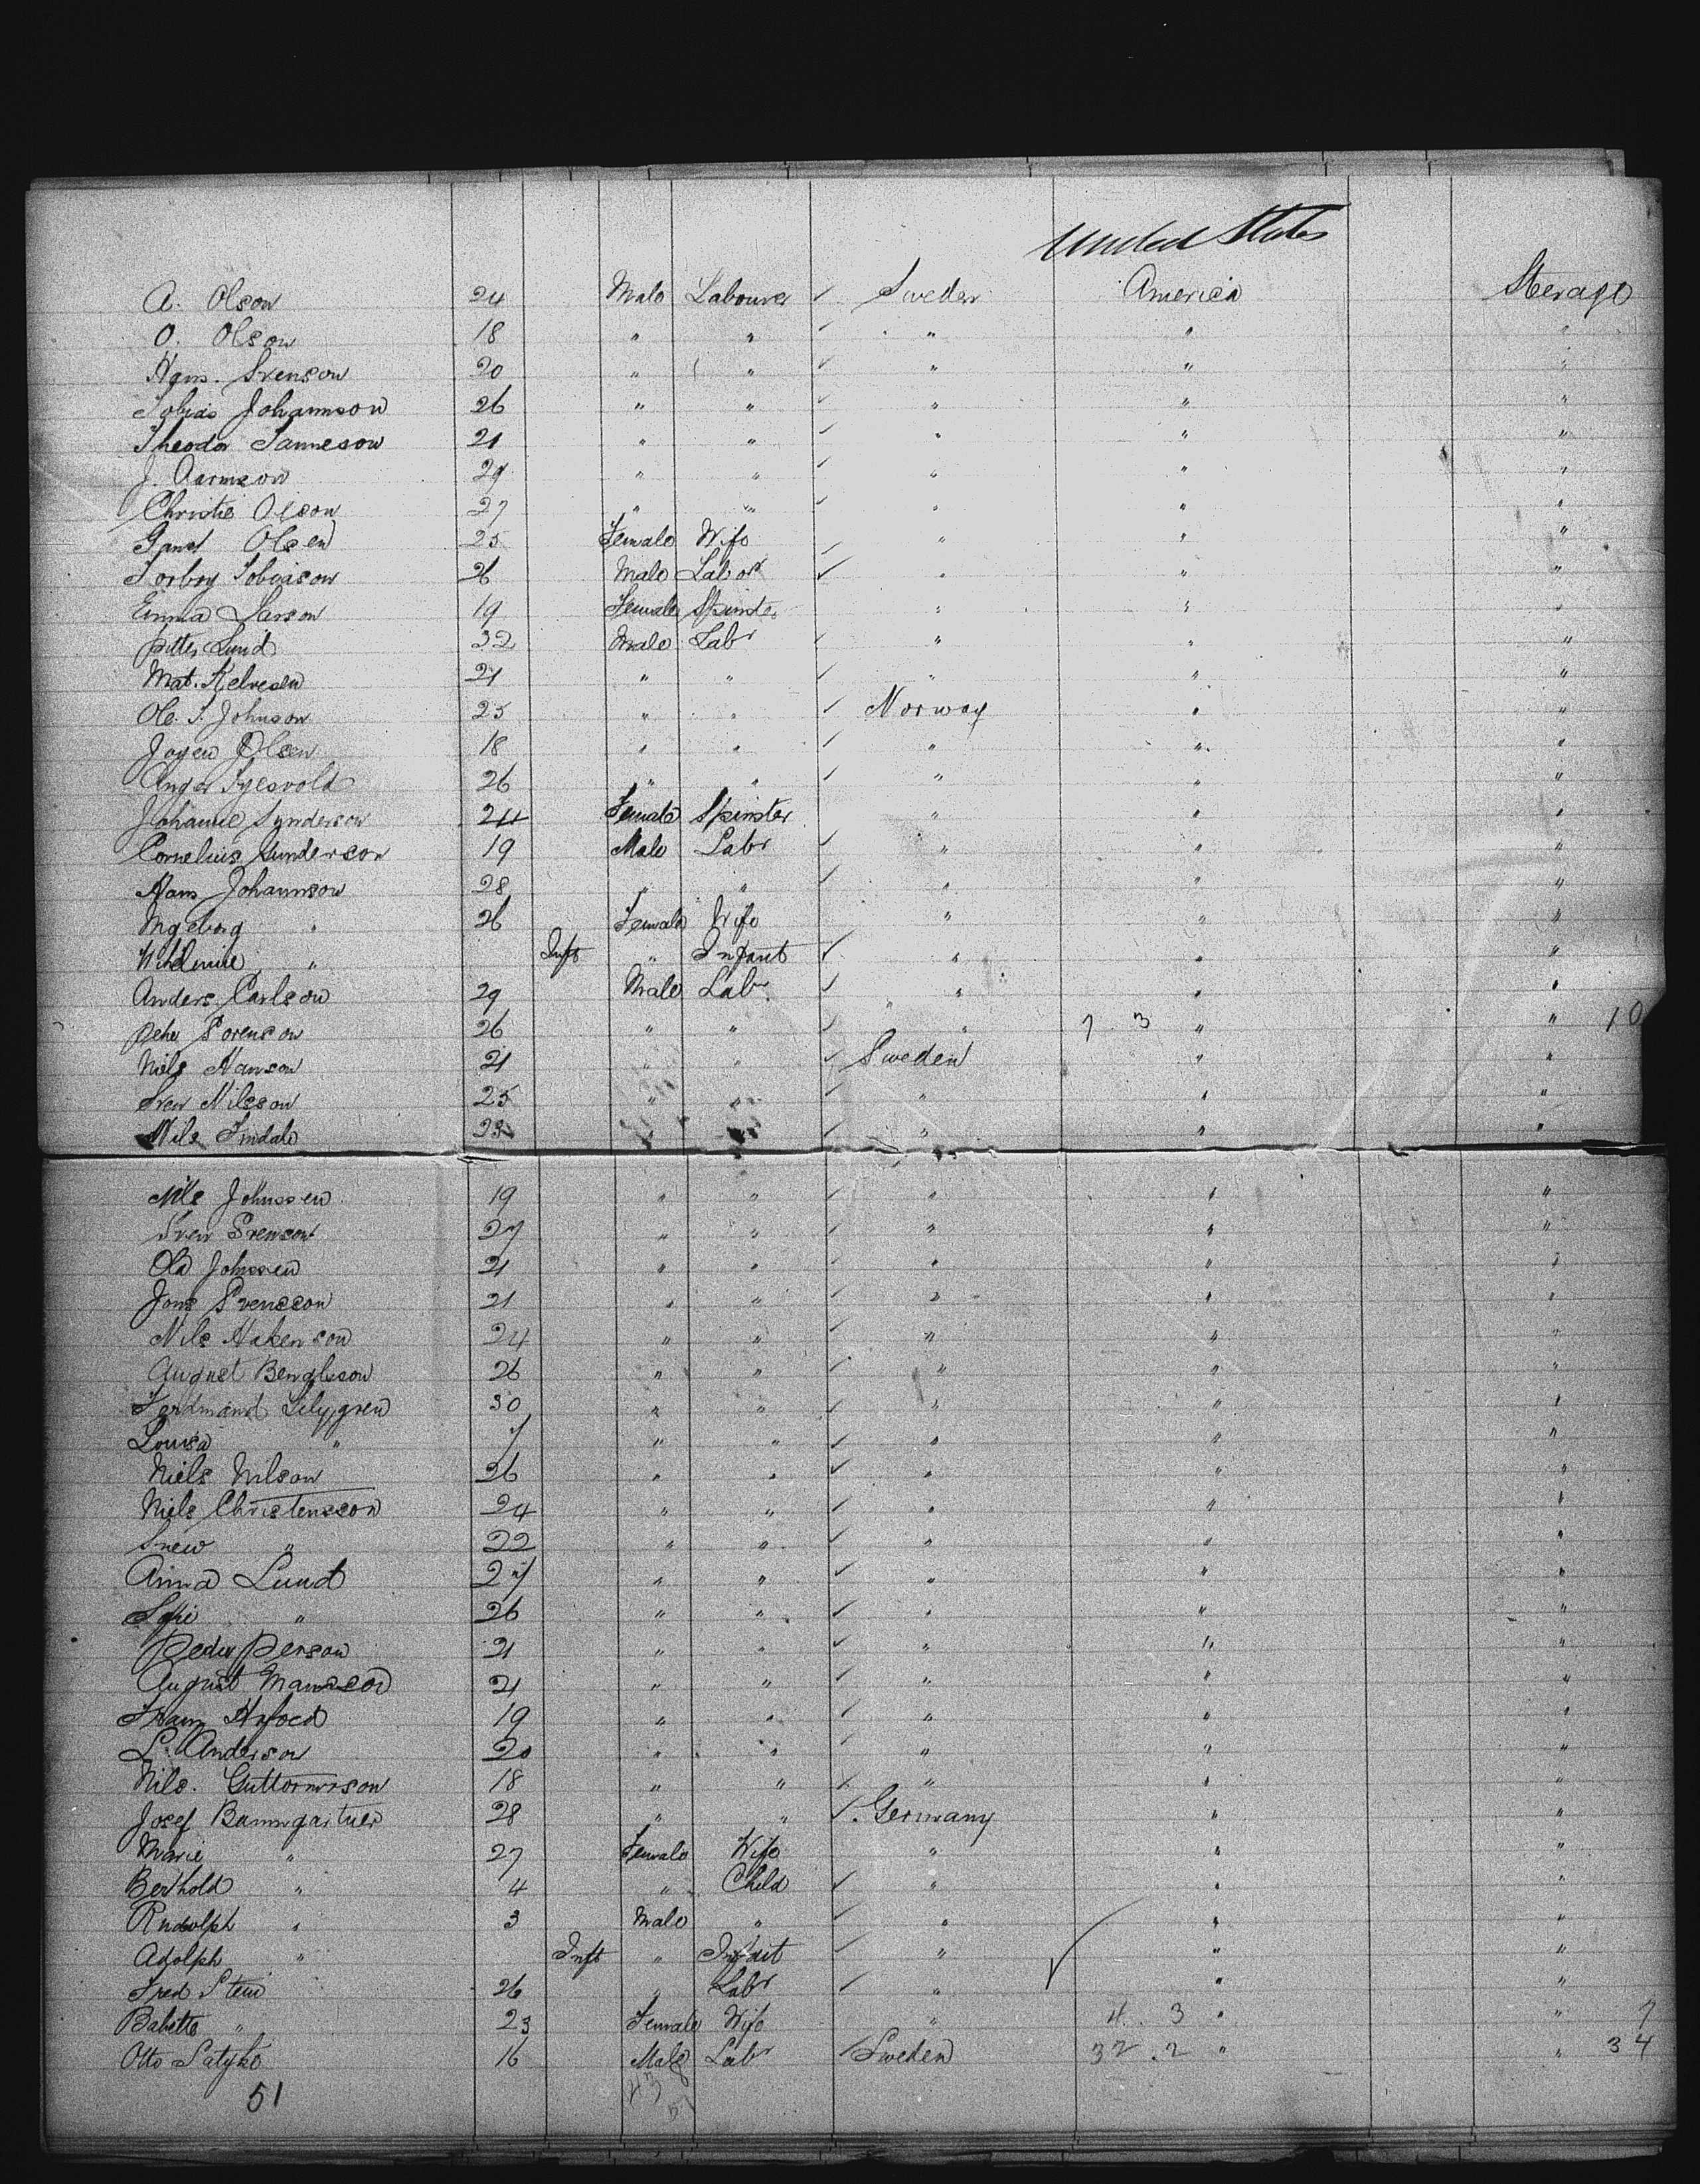 United States
A. Olson 24 Male Labourer ✓ Sweden America Sterage
O. Olson 18 " " ✓ " " "
Hans. Svenson 20 " " ✓ " " "
Tobias Johannson 26 " " ✓ " " "
Theodor Janneson 21 " " ✓ " " "
J. 29 " " ✓ " " "
Christie Olson 27 " " ✓ " " "
Olsen 25 Female Wife ✓ " " "
Torborg Tobiason 26 Male Labor ✓ " " "
Emma Larson 19 Female Spinster " " "
Petter Lund 32 Male Labr ✓ " " "
Mat. 21 " " ✓ " " "
Ole. T. Johnson 25 " " ✓ Norway " "
Olsen 18 " " ✓ " " "
26 " " ✓ " " "
24 Female Spinster " " "
Cornelius Gunderson 19 Male Labr ✓ " " "
Hans Johannson 28 " " ✓ " " "
Ingeborg " 26 Female Wife " " "
" Inft " Infant ✓ " " "
Anders Carlson 29 Male Labr ✓ " " "
Sorenson 26 " " ✓ " 7 . 3 " " 10
Niels Hanson 21 " " ✓ Sweden " "
Sven Nilsson 25 " " ✓ " " "
Nils 23 " " ✓ " " "
Nils Johnssen 19 " " ✓ " " "
Sven Svenson 27 " " ✓ " " "
Ola Johnssen 21 " " ✓ " " "
Jons Svensson 21 " " ✓ " " "
Nils Hakenson 24 " " ✓ " " "
August Bengtsson 26 " " ✓ " " "
Ferdinand Lilygren 30 " " ✓ " " "
Louisa " 7 " " ✓ " " "
Niels Nilson 26 " " ✓ " " "
Niels Christensson 24 " " ✓ " " "
" 22 " " ✓ " " "
Anna Lund 27 " " ✓ " " "
" 26 " " ✓ " " "
Peder Person 21 " " ✓ " " "
August Mansson 21 " " ✓ " " "
19 " " ✓ " " "
L. Anderson 20 " " ✓ " " "
Nils. Guttormson 18 " " ✓ " " "
Josef Baumgartner 28 " " ✓ Germany " "
Marie " 27 Female Wife " " "
Berthold " 4 " Child ✓ " " "
Rudolph " 3 Male " ✓ " " "
Adolph " Inft " Infant ✓ " " "
Fred Stein 26 " Labr ✓ " " "
Babette " 23 Female Wife " 4 . 3 " " 7
Otto 16 Male Labr ✓ Sweden 32 . 2 " " 34
51 43 8
51